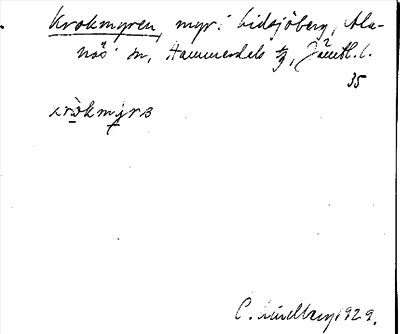 Krokmyren, myr i Lidsjöberg, Ala-
näs sn, Hammerdals tg, Jämtl. l.
35
C. Lindberg 1929.